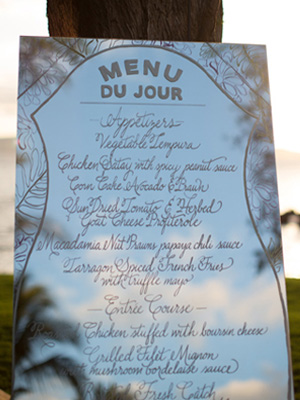 MENU
DU JOUR
Appetizers
Vegetable Tempura
Chicken Satay with spicy peanut sauce
Corn Cake Avocado & Prawn
Sun Dried Tomato & Herbed
Goat Cheese Profiterole
Macadamia Nut Prawns papaya chili sauce
Tarragon Spiced French Fries
with truffle mayo
Entrée Course
Chicken stuffed with boursin cheese
Grilled Filet Mignon
mushroom bordelaise sauce
Fresh Catch